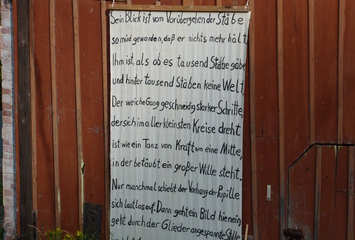 Sein Blick ist vom Vorübergehen der Stäbe
so müd geworden, daß er nichts mehr hält.
Ihm ist, als ob es tausend Stäbe gäbe
und hinter tausend Stäben keine Welt.
Der weiche Gang geschmeidig starker Schritte,
der sich im allerkleinsten Kreise dreht
ist wie ein Tanz von Kraft um eine Mitte,
in der betäubt ein großer Wille steht.
Nur manchmal schiebt der Vorhang der Pupille
sich lautlos auf. Dann geht ein Bild hinein
geht durch der Glieder angespannte Stille